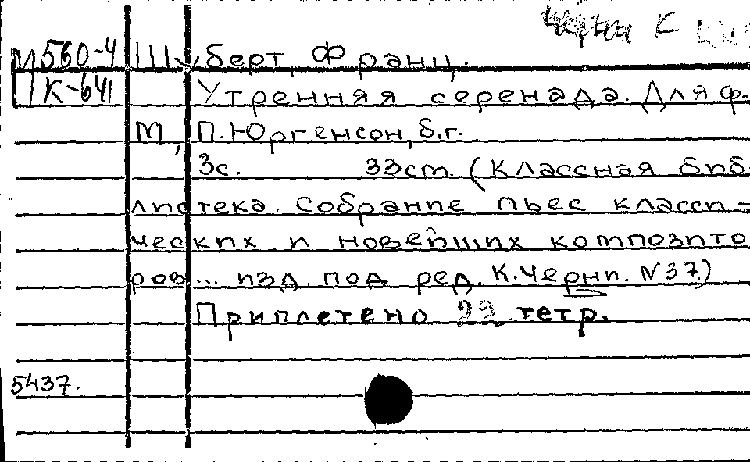 М560-4 Шуберт, Франц.
К-641 Утренняя серенада. Для ф.
М., П. Юргенсон, б.г.
3с. 33см. (Классная биб-
лиотека. Собрание пьес класси-
ческих и новейших композито
ров... изд под ред. К. Черни. N37)
Приплетено 22 тетр.
5437.